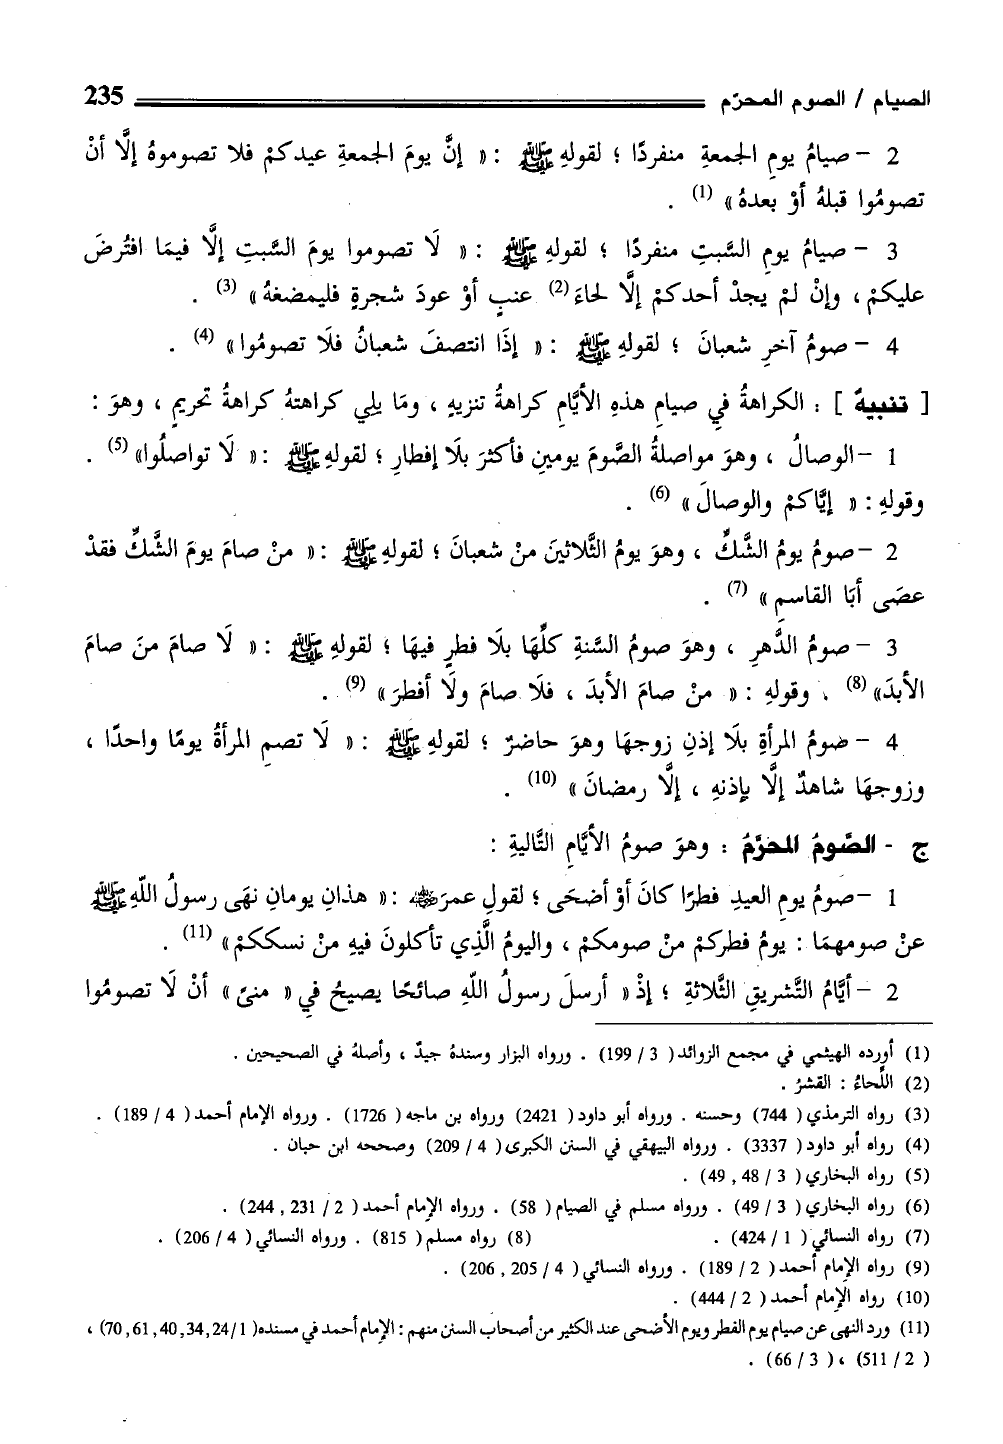 الصيام / الصوم المحرّم 235
2 - صيامُ يومِ الجمعةِ منفردًا ؛ لقولهِ ﷺ : « إنَّ يومَ الجمعةِ عيدكمْ فلا تصوموهُ إلَّا أنْ
تصومُوا قبلهُ أوْ بعدهُ » (1) .
3 - صيامُ يومِ السَّبتِ منفردًا ؛ لقولهِ ﷺ : « لَا تصوموا يومَ السَّبتِ إلَّا فيمَا افتُرضَ
عليكمْ ، وإنْ لمْ يجدْ أحدكمْ إلَّا لحاءَ (2) عنبٍ أوْ عودَ شجرةٍ فليمضغهُ » (3) .
4 - صومُ آخرِ شعبانَ ؛ لقولهِ ﷺ : « إذَا انتصفَ شعبانُ فلَا تصومُوا » (4) .
[ تنبيهٌ ] : الكراهةُ في صيامِ هذهِ الأيَّامِ كراهةُ تنزيهٍ ، ومَا يلي كراهتهُ كراهةُ تحريمٍ ، وهوَ :
1 - الوصالُ ، وهوَ مواصلةُ الصَّومَ يومينِ فأكثرَ بلَا إفطارِ ؛ لقولهِ ﷺ : « لَا تواصلُوا » (5) .
وقولهِ : « إيَّاكمْ والوصالَ » (6) .
2 - صومُ يومُ الشَّكِّ ، وهوَ يومُ الثَّلاثينَ منْ شعبانَ ؛ لقولهِ ﷺ : « منْ صامَ يومَ الشَّكِّ فقدْ
عصَى أبَا القاسمِ » (7) .
3 - صومُ الدَّهرِ ، وهوَ صومُ السَّنةِ كلِّهَا بلَا فطرٍ فيهَا ؛ لقولهِ ﷺ : « لَا صامَ منَ صامَ
الأبدَ » (8) . وقولهِ : « منْ صامَ الأبدَ ، فلَا صامَ ولَا أفطرَ » (9) .
4 - صومُ المرأةِ بلَا إذنِ زوجهَا وهوَ حاضرٌ ؛ لقولهِ ﷺ : « لَا تصمِ المرأةُ يومًا واحدًا ،
وزوجهَا شاهدٌ إلَّا بإذنهِ ، إلَّا رمضانَ » (10) .
ج - الصَّومُ المحرَّمُ : وهوَ صومُ الأيَّامِ التَّاليةِ :
1 - صومُ يومِ العيدِ فطرًا كانَ أوْ أضحَى ؛ لقولِ عمرَ ﵁ : « هذانِ يومانِ نهَى رسولُ اللّهِ ﷺ
عنْ صومهمَا : يومُ فطركمْ منْ صومكمْ ، واليومُ الَّذِي تأكلونَ فيهِ منْ نسككمْ » (11) .
2 - أيَّامُ التَّشريقِ الثَّلاثةِ ؛ إذْ « أرسلَ رسولُ اللّهِ صائحًا يصيحُ في « منىً » أنْ لَا تصومُوا
(1) أورده الهيثمي في مجمع الزوائد ( 3 / 199 ) . ورواه البزار وسندهُ جيدٌ ، وأصلهُ في الصحيحين .
(2) اللِّحاءُ : القشرُ .
(3) رواه الترمذي ( 744 ) وحسنه . ورواه أبو داود ( 2421 ) ورواه بن ماجه ( 1726 ) . ورواه الإمام أحمد ( 4 / 189 ) .
(4) رواه أبو داود ( 3337 ) . ورواه البيهقي في السنن الكبرى ( 4 / 209 ) وصححه ابن حبان .
(5) رواه البخاري ( 3 / 48 , 49 ) .
(6) رواه البخاري ( 3 / 49 ) . ورواه مسلم في الصيام ( 58 ) . ورواه الإمام أحمد ( 2 / 231 , 244 ) .
(7) رواه النسائي ( 1 / 424 ) . (8) رواه مسلم ( 815 ) . ورواه النسائي ( 4 / 206 ) .
(9) رواه الإمام أحمد ( 2 / 189 ) . ورواه النسائي ( 4 / 205 , 206 ) .
(10) رواه الإمام أحمد ( 2 / 444 ) .
(11) ورد النهى عن صيام يوم الفطر ويوم الأضحى عند الكثير من أصحاب السنن منهم : الإمام أحمد في مسنده ( 1/ 24, 34, 40, 61, 70 ) ،
( 2 / 511 ) ، ( 3 / 66 ) .